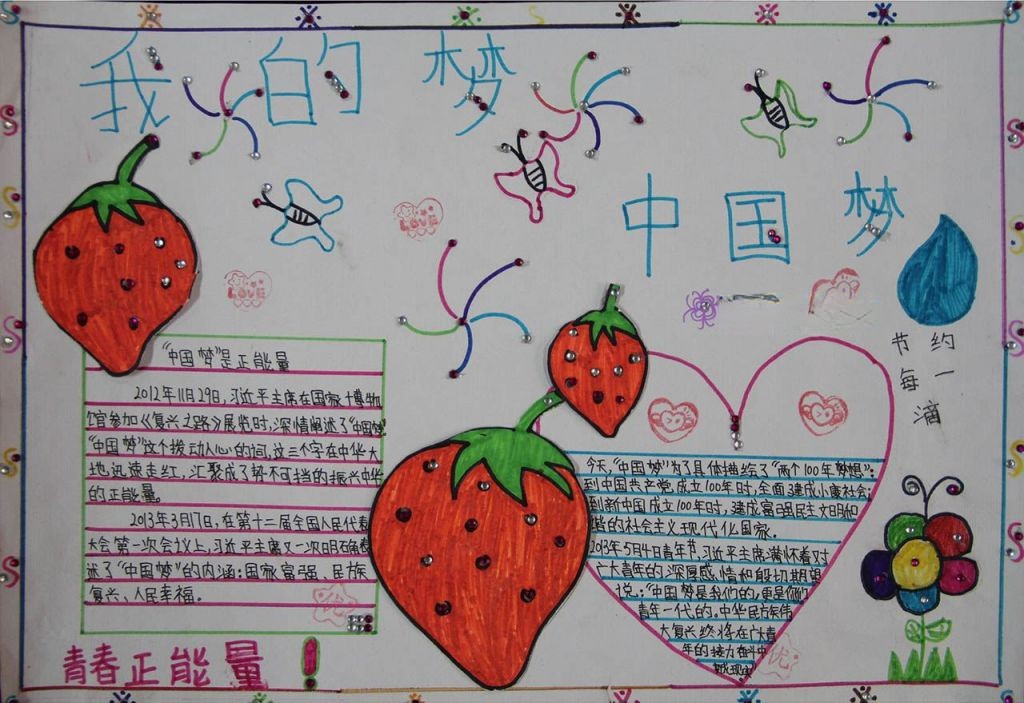 我的梦
中国梦
"中国梦"是正能量
2012年11月29日,习近平主席在国家博物
馆参加《复兴之路》展览时,深情阐述了"中国梦"
"中国梦"这个拨动人心的词,这三个字在中华大
地迅速走红,汇聚成了势不可挡的振兴中华
的正能量。
2013年3月17日,在第十二届全国人民代表
大会第一次会议上,习近平主席又一次明确阐
述了"中国梦"的内涵:国家富强、民族
复兴、人民幸福。
青春正能量!
LOVE
LOVE
节约
每一
滴
今天,"中国梦"为了具体描绘了"两个100年梦想":
到中国共产党成立100年时,全面建成小康社会;
到新中国成立100年时,建成富强民主文明和
谐的社会主义现代化国家。
2013年5月4日青年节,习近平主席满怀着对
广大青年的深厚感情和殷切期望
说:"中国梦是我们的,更是你们
青年一代的。中华民族伟
大复兴终将在广青
年的接力奋斗中
变成现实
优
优